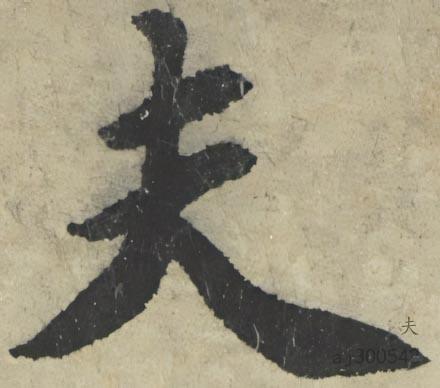 夫
夫
a j300542